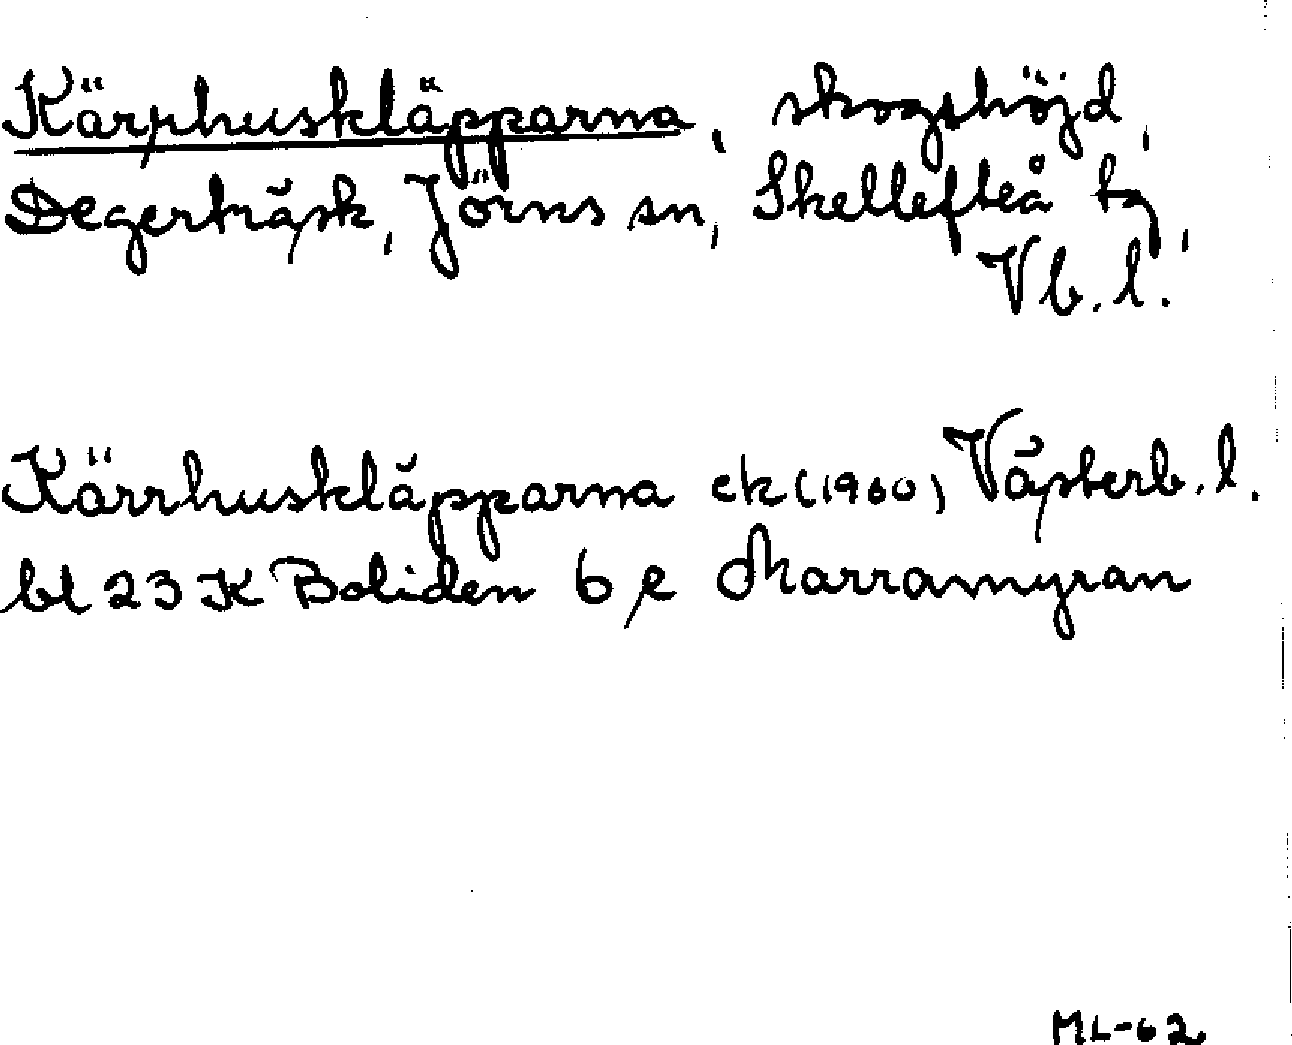 Kärrhuskläpparna, skogshöjd,
Degerträsk, Jörns sn, Skellefteå tg,
Vb. l.
Kärrhuskläpparna ek (1960) Västerb. l.
bl 23 K Boliden 6 e Marramyran
ML-62